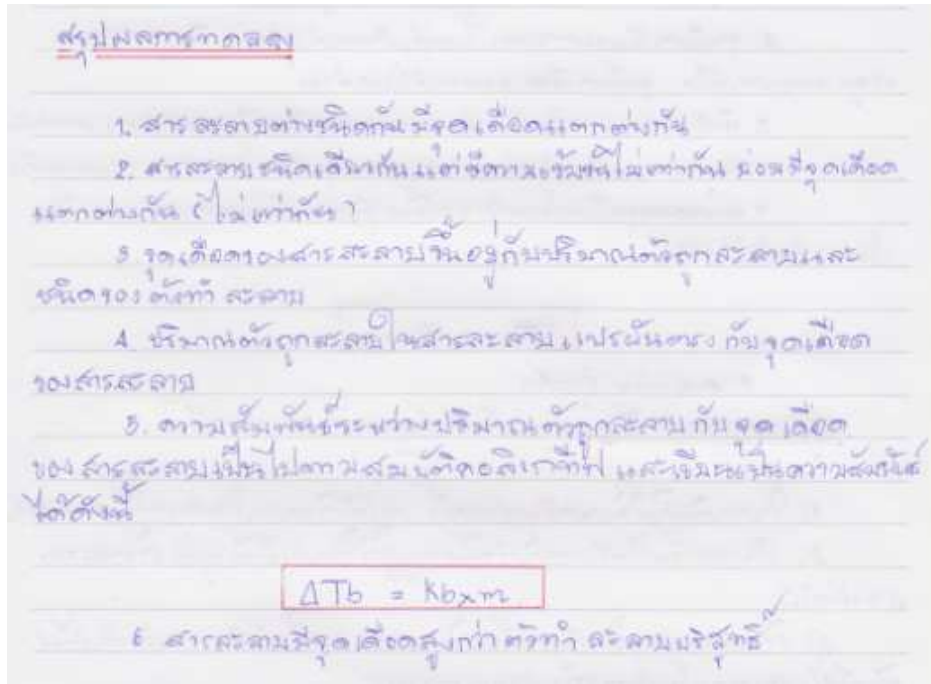 สรุปผลการทดลอง
1. สารละลายต่างชนิดกัน มีจุดเดือดแตกต่างกัน
2. สารละลายชนิดเดียวกัน แต่มีความเข้มข้นไม่เท่ากัน ย่อมมีจุดเดือด
แตกต่างกัน (ไม่เท่ากัน)
3 จุดเดือดของสารละลายขึ้นอยู่กับปริมาณตัวถูกละลายและ
ชนิดของตัวทำ ละลาย
4. ปริมาณตัวถูกละลายในสารละลาย แปรผันตรง กับจุดเดือด
ของสารละลาย
5. ความสัมพันธ์ระหว่างปริมาณตัวถูกละลาย กับ จุดเดือด
ของสารละลายเป็นไปตามสมบัติคอลิเกทีฟ และเขียนเป็นความสัมพันธ์
ได้ดังนี้
ΔTb = Kbxm
6 สารละลายมีจุดเดือดสูงกว่า ตัวทำ ละลายบริสุทธิ์